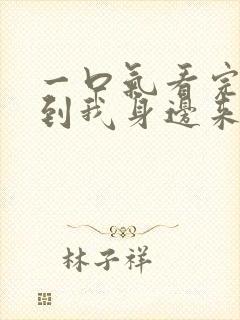 一口氣看完
到我身邊來
林子祥